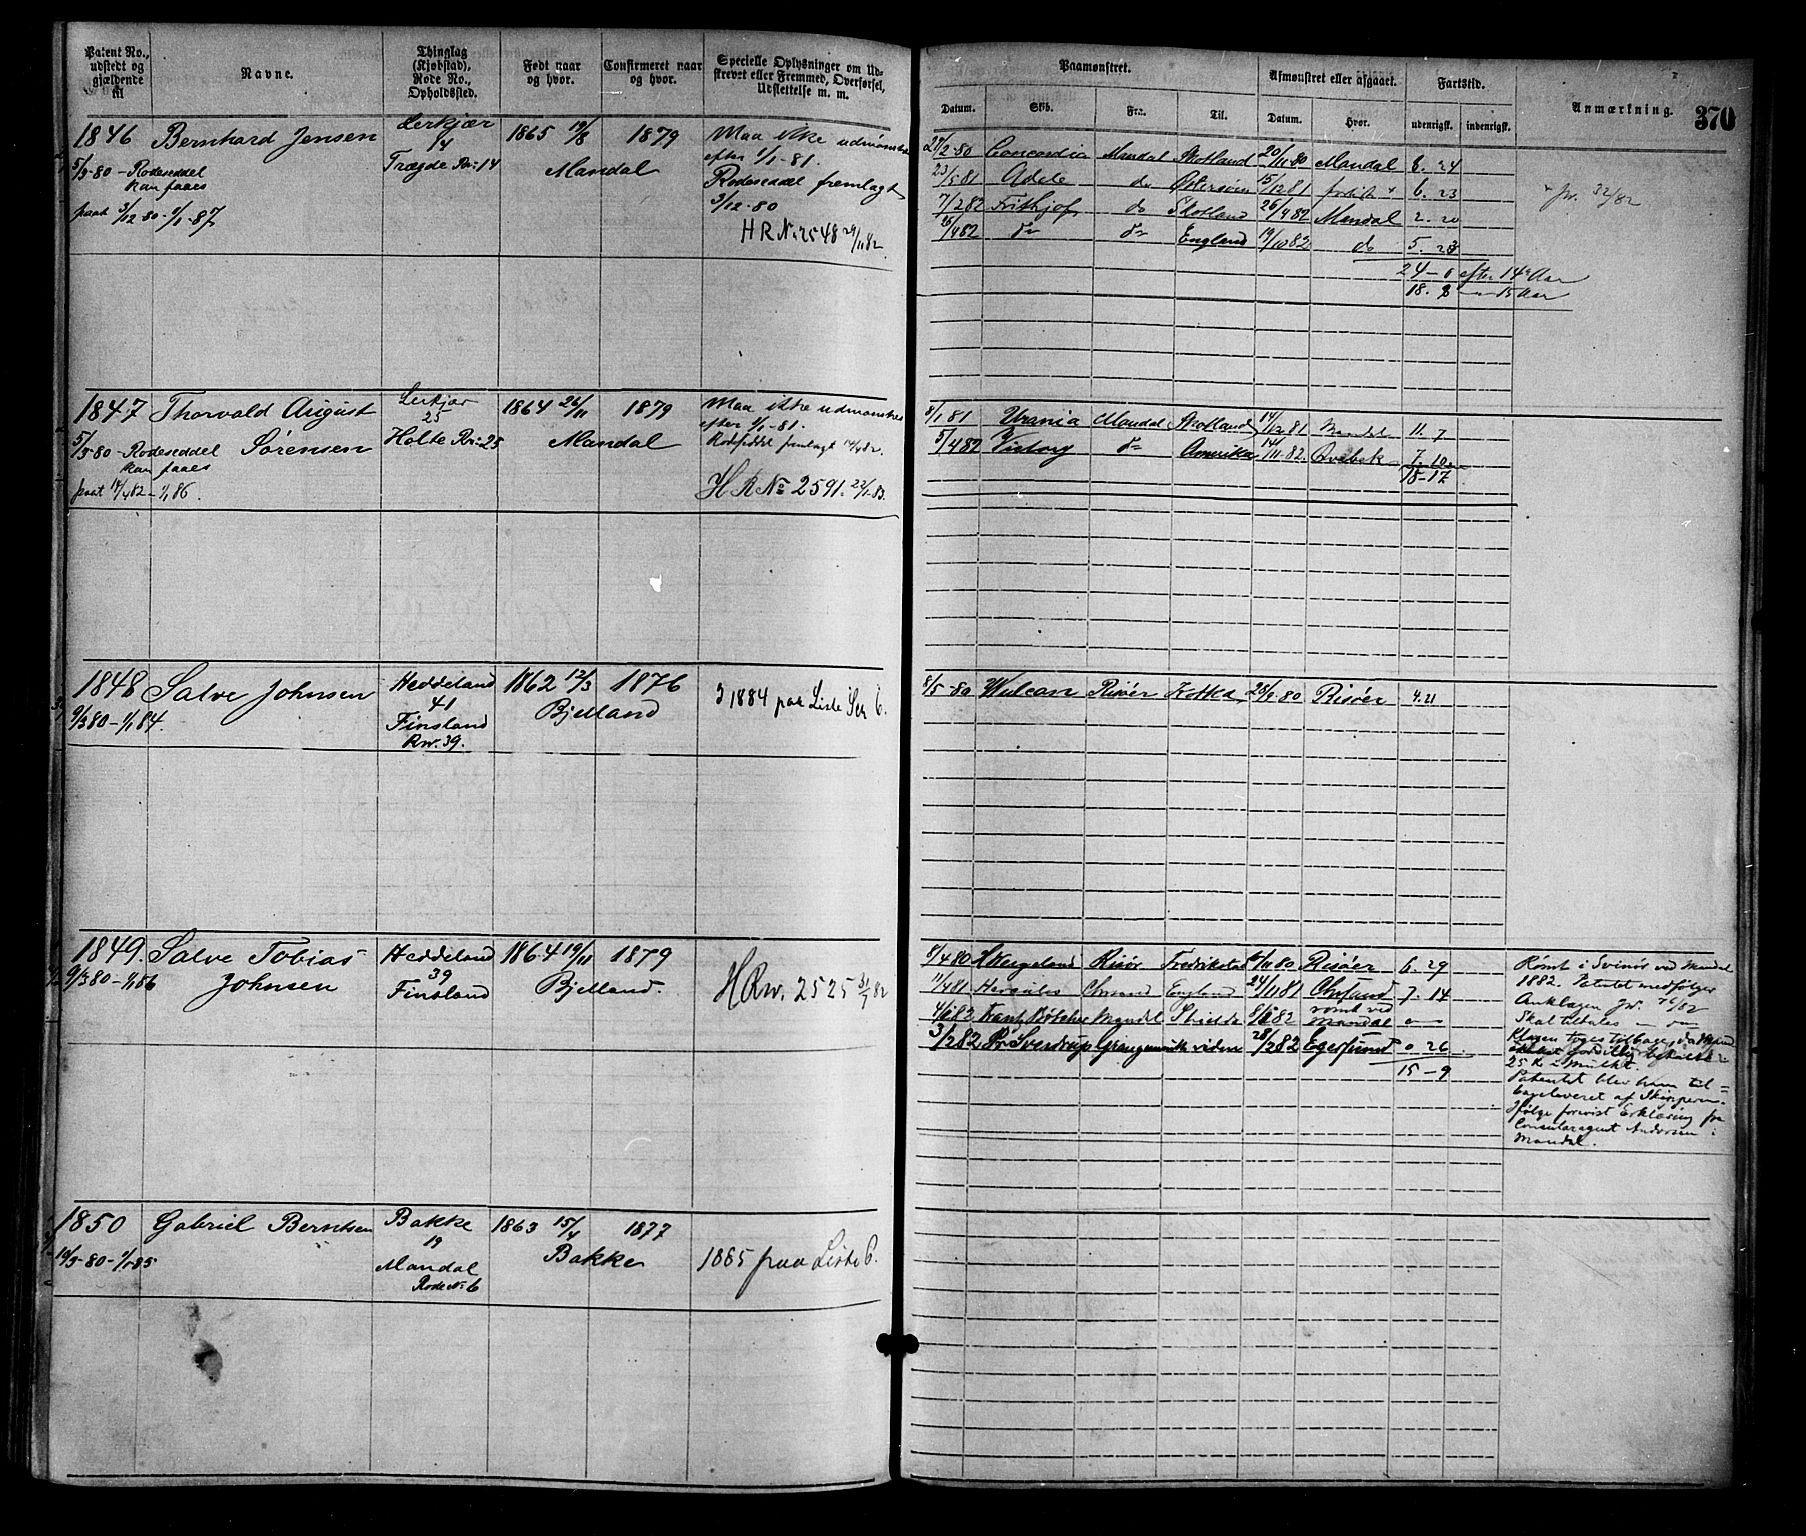 Patent No., udstedt og gjældende til
Navne.
Thinglag (Kjøbstad), Rode No., Opholdssted.
Født naar og hvor.
Confirmeret naar og hvor.
Specielle Oplysninger om Udstrevet eller Fremmed, Overførsel, Udslettelse m. m.
Paamønstret.
Afmønstret eller afgaaet.
Fartstid.
Anmærkning.
370
Datum.
Skib.
Fra.
Til.
Datum.
Hvor.
udenrigsk.
indenrigsk.
1846 Bernhard Jensen
5/3-80 - Rodeseddel
kan faaes
paat 3/12 80 - 1/1-87
Lerkjær
14
Trægde Rn: 14
1865 19/8 1879
Mandal
Maa ikke udmønstres
efter 1/1-81.
Rodeseddel fremlagt
3/12-80
H R No 2548 29/11 82
21/2-80 Concordia Mandal Skotland 20/11-80 Mandal 8. 24
23/5 81 Adele do Østersøen 15/12 81 6. 23
7/2 82 Frithjof do Skotland 26/4 82 Mandal 2. 20
26/4 82 do do England 19/10 82 do 5. 23
24-0 efter 14 Aar
18. 8 - 15 Aar
32/82
1847 Thorvald August
Sørensen
5/3-80 - Rodeseddel
kan faaes
paat 14/4 82 - 1/1 86.
Lerkjær
25
Holte Rn: 25
1864 26/11 1879
Mandal
Maa ikke udmønstres
efter 1/1-81.
fremlagt 14/4 82.
H R No 2591. 22/1-83.
8/1 81 Urania Mandal Skotland 14/12 81 Mandal 11. 7
5/4 82 Victory do Amerika 14/11-82. 7. 10
18-17
1848 Salve Johnsen
9/3 80 - 1/1 84.
Heddeland
41
Finsland
Rn. 39.
1862 12/3 1876
Bjelland
I 1884 paa Liste Ser 6.
8/5-80 Wulcan Risøer Kotka 29/9-80 Risøer 4. 21
1849. Salve Tobias
Johnsen
9/3 80 - 1/1 86
Heddeland
39
Finsland
1864 19/11 1879
Bjelland.
H Rn. 2525 31/7 82
8/4 80 H Wergeland Risør Fredrikstad Risøer 6. 29
11/4 81 Hercules Chrsand England 24/11 81 Chrsand 7. 14
rømt ved
Mandal
3/2 82 Pr Sverdrup viden 28/2 82 Egersund 0 26
15-9
Rømt i Svinør ved Mandal
1882. Patentet medfølger
Anklagen Jr. 76/82
Skal tiltales
Klagen toges tilbage, da
25 Kr i Mulkt.
Patentet blev ham til=
bageleveret af Skipperen.
Ifølge forevist Erklæring fra
Consularagent Andersen i
Mandal.
1850 Gabriel Berntsen
19/3-80 - 1/1 85
Bakke
19
Mandal
Rode No 6
1863 15/4 1877
Bakke
1885 paa Liste 6.